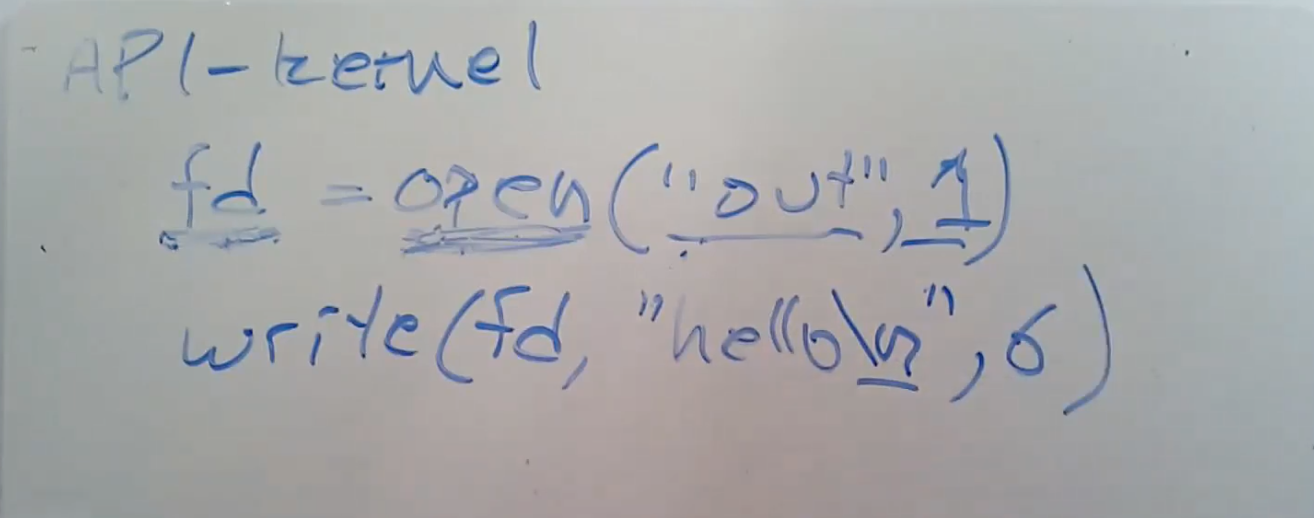 API-kernel
fd = open("out", 1)
write(fd, "hello\n", 6)